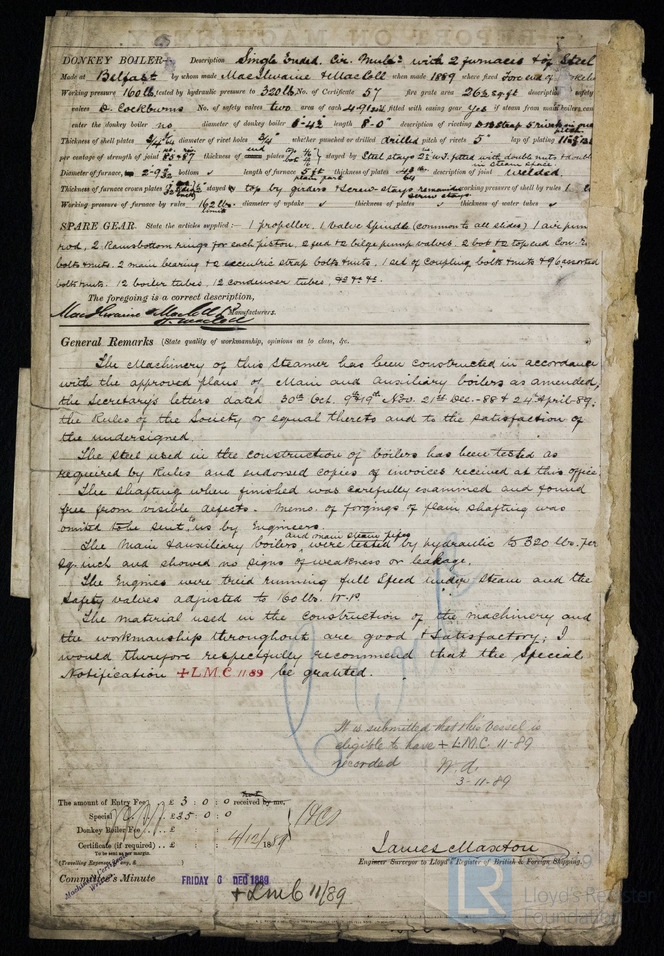 DONKEY BOILER— Description Single Ended, Cir. Mult. with 2 furnaces & of Steel
Made at Belfast by whom made MacIlwaine & MacColl when made 1889 where fixed Fore end of
Working pressure 160 lb tested by hydraulic pressure to 320 lb No. of Certificate 57 fire grate area 26½ sq ft description safety
valves D. Cockburns No. of safety valves two area of each 4.91 fitted with easing gear Yes if steam from main boilers can
enter the donkey boiler no diameter of donkey boiler 8'-4½" length 8'-0" description of riveting
Thickness of shell plates diameter of rivet holes ¾" whether punched or drilled drilled pitch of rivets 5" lap of plating
per centage of strength of joint 85 & 87 thickness of end plates stayed by Steel stays fitted with double nuts & double
in steam space.
Diameter of furnace, bottom length of furnace 5 ft thickness of plates description of joint welded.
Thickness of furnace crown plates stayed by top by girders & screw stays, remainder screw stays. Working pressure of shell by rules
Working pressure of furnace by rules 162 lb diameter of uptake thickness of plates thickness of water tubes
SPARE GEAR. State the articles supplied :— 1 propeller, 1 valve spindle (common to all slides) 1 air pump
rod, 2 Ramsbottom rings for each piston, 2 feed & 2 bilge pump valves, 2 bot & 2 top end Con.
bolts & nuts, 2 main bearing & 2 eccentric strap bolts & nuts, 1 set of coupling bolts & nuts & 96 assorted
bolts & nuts. 12 boiler tubes, 12 condenser tubes,
The foregoing is a correct description,
MacIlwaine & MacColl Manufacturers.
General Remarks (State quality of workmanship, opinions as to class, &c.
The Machinery of this Steamer has been constructed in accordance
with the approved plans of Main and auxiliary boilers as amended,
the Secretary's letters dated 30th Oct. 9th & 19th Nov. 21st Dec.-88 & 24th April-89,
the Rules of the Society or equal thereto and to the satisfaction of
the undersigned.
The steel used in the construction of boilers has been tested as
required by Rules and endorsed copies of invoices received at this office.
The shafting when finished was carefully examined and found
free from visible defects. Memo. of forgings of plain shafting was
omitted to be sent to us by Engineers.
and main steam pipes
The Main & auxiliary boilers, were tested by hydraulic to 320 lbs. per
sq. inch and showed no signs of weakness or leakage.
The Engines were tried running full Speed under steam and the
Safety valves adjusted to 160 lbs. W.P.
The material used in the construction of the machinery and
the workmanship throughout are good & satisfactory; I
would therefore respectfully recommend that the Special
Notification + L.M.C. 11 89 be granted.
It is submitted that this vessel is
eligible to have + L.M.C. 11-89
recorded
3-11-89
The amount of Entry Fee .. £ 3 : 0 : 0 received by me,
Special .. £ 35 : 0 : 0
Donkey Boiler Fee .. .. £
Certificate (if required) .. £ 4/12/1889
To be sent as per margin.
(Travelling Expenses, if any, £
James Maxton
Engineer Surveyor to Lloyd's Register of British & Foreign Shipping.
Committee's Minute FRIDAY 6 DEC 1889
+ LMC 11/89
LR Lloyd's Register
Foundation